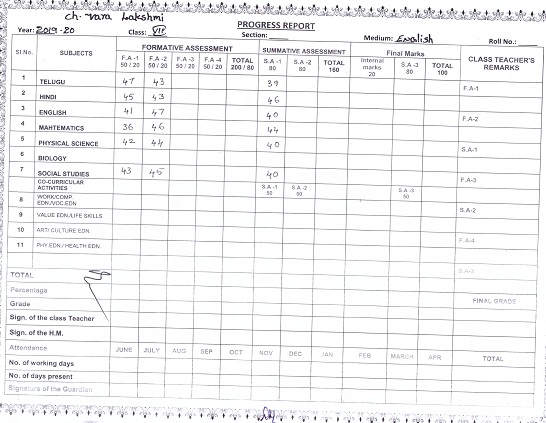 ch. Vara Lakshmi
PROGRESS REPORT
Year: 2019-20 Class: VII Section: Medium: English Roll No.:
Sl.No. SUBJECTS FORMATIVE ASSESSMENT SUMMATIVE ASSESSMENT Final Marks CLASS TEACHER'S REMARKS
F.A -1 50 / 20 F.A -2 50 / 20 F.A -3 50 / 20 F.A -4 50 / 20 TOTAL 200 / 80 S.A -1 80 S.A -2 80 TOTAL 160 Internal marks 20 S.A -3 80 TOTAL 100
1 TELUGU 47 43 39 F.A-1
2 HINDI 45 43 46
3 ENGLISH 41 47 40 F.A-2
4 MAHTEMATICS 36 46 44
5 PHYSICAL SCIENCE 42 44 40 S.A-1
6 BIOLOGY
7 SOCIAL STUDIES 43 45 40 F.A-3
CO-CURRICULAR ACTIVITIES S.A -1 50 S.A -2 50 S.A -3 50
8 WORK/COMP. EDN./VOC.EDN S.A-2
9 VALUE EDN./LIFE SKILLS
10 ART/ CULTURE EDN. F.A-4
11 PHY.EDN / HEALTH EDN.
TOTAL S.A-3
Percentage
Grade FINAL GRADE
Sign. of the class Teacher
Sign. of the H.M.
Attendance JUNE JULY AUG SEP OCT NOV DEC JAN FEB MARCH APR TOTAL
No. of working days
No. of days present
Signature of the Guardian